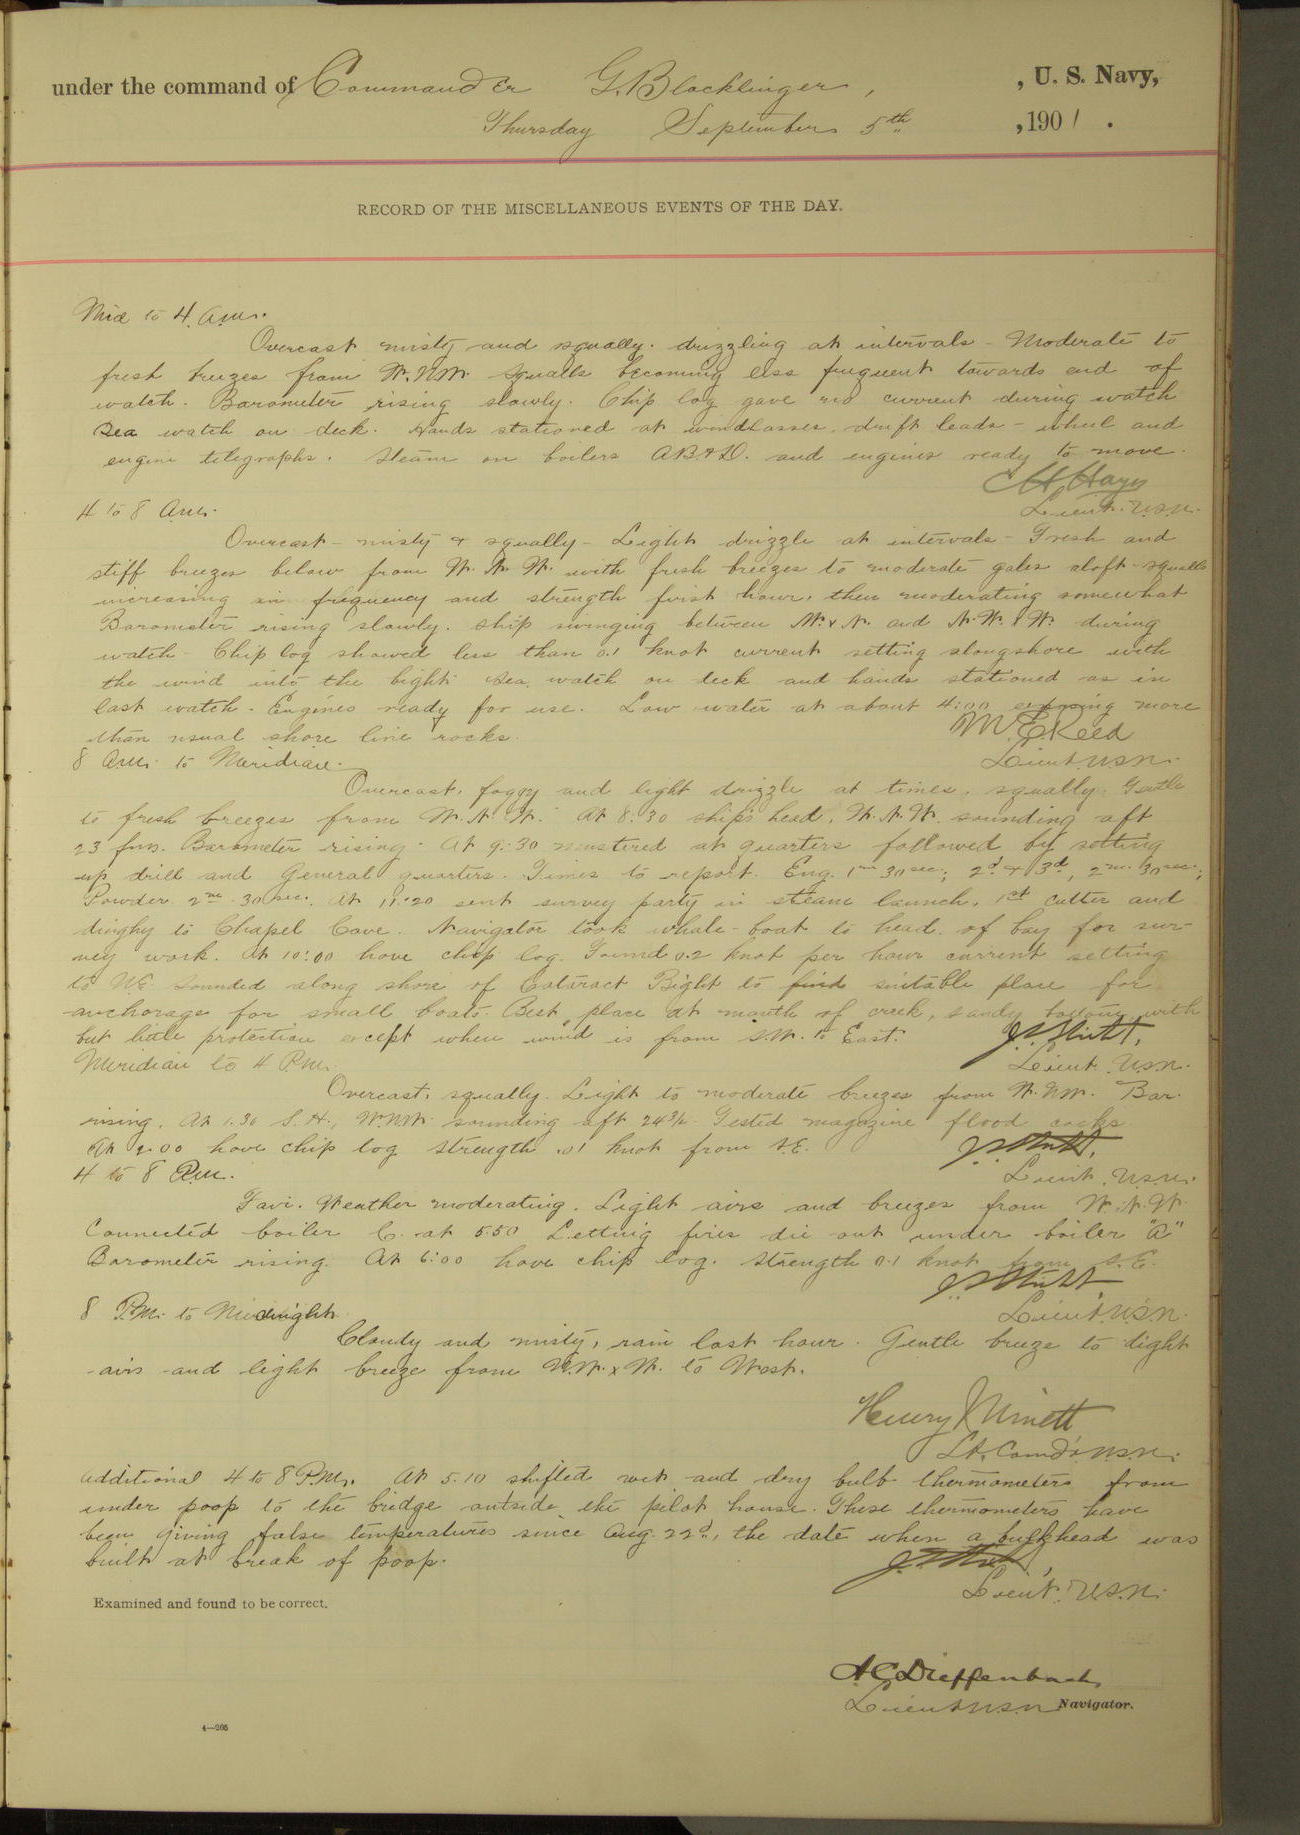 under the command of Commander G. Blocklinger, , U. S. Navy,
Thursday September 5th ,1901.
RECORD OF THE MISCELLANEOUS EVENTS OF THE DAY.
Mid to 4 a.m.
Overcast misty and squally. drizzling at intervals - Moderate to
fresh breezes from W.N.W. Squalls becoming less frequent towards end of
watch. Barometer rising slowly. Chip log gave no current during watch
Sea watch on deck. Hands stationed at windlasses, drift leads - wheel and
engine telegraphs. Steam on boilers A B & D. and engines ready to move.
Lieut. U.S.N.
4 to 8 a.m.
Overcast - misty & squally - Light drizzle at intervals - Fresh and
stiff breezes below from W.N.W. with fresh breezes to moderate gales aloft - squalls
increasing in frequency and strength first hour, then moderating somewhat
Barometer rising slowly. Ship swinging between W. x N. and N.W. x W. during
watch - Chip log showed less than 0.1 knot current setting alongshore with
the wind into the bight. Sea watch on deck and hands stationed as in
last watch. Engines ready for use. Low water at about 4:00 exposing more
than usual shore line rocks.
M. E. Reed
Lieut. U.S.N.
8 a.m. to Meridian.
Overcast, foggy and light drizzle at times, squally. Gentle
to fresh breezes from W.N.W. At 8:30 ship's head, W.N.W. sounding aft
23 fms. Barometer rising. At 9:30 mustered at quarters followed by setting
up drill and General quarters. Times to report. Eng. 1m 30sec; 2d & 3d, 2m 30sec;
Powder 2m 30sec. At 11:20 sent survey party in steam launch, 1st cutter and
dinghy to Chapel Cove. Navigator took whale-boat to head of bay for sur-
vey work. At 10:00 hove chip log. Found 0.2 knot per hour current setting
to Sounded along shore of Cataract Bight to find suitable place for
anchorage for small boats. Best place at mouth of creek, sandy bottom with
but little protection except when wind is from S.W. to East.
Lieut. U.S.N.
Meridian to 4 P.M.
Overcast, squally. Light to moderate breezes from W.N.W. Bar.
rising. At 1.30 S.H., W.N.W. sounding aft Tested magazine flood cocks
At 2.00 hove chip log strength .01 knot from S.E.
Lieut. U.S.N.
4 to 8 P.M.
Fair. Weather moderating. Light airs and breezes from W.N.W.
Connected boiler C. at 5:50 Letting fires die out under boiler "A"
Barometer rising. At 6:00 hove chip log. Strength 0.1 knot from S.E.
Lieut. U.S.N.
8 P.M. to Midnight
Cloudy and misty, rain last hour. Gentle breeze to light
airs and light breeze from N.W. x W. to West.
Henry Minett
Lt. Comd'r U.S.N.
Additional 4 to 8 P.M. At 5.10 shifted wet and dry bulb thermometers from
under poop to the bridge outside the pilot house. These thermometers have
been giving false temperatures since Aug. 22d, the date when a bulkhead was
built at break of poop.
Lieut. U.S.N.
Examined and found to be correct.
A C Dieffenbach
Lieut U.S.N. Navigator.
4—205